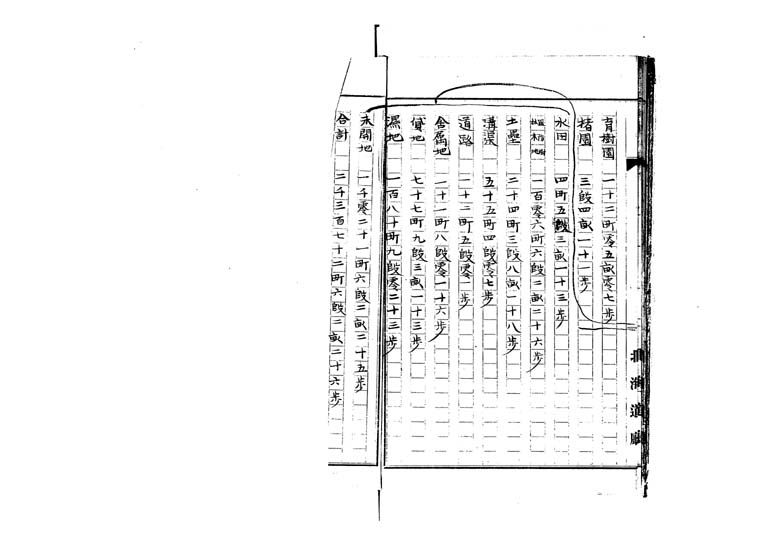 育樹園 一十二町零五畝零七歩
楮園 三段四畝一十一歩
水田 四町五段三畝一十三歩
植栢地 一百零六町六段二畝二十六歩
土塁 二十四町三段八畝一十八歩
溝渠 五十五町四段零七歩
道路 一十二町五段零一歩
舎属地 二十一町八段零一十六歩
貸地 七十七町九段三畝一十三歩
濕地 一百八十町九段零二十三歩
未開地 一千零二十一町六段二畝二十五歩
合計 二千三百七十二町六段二畝二十六歩
北海道廳